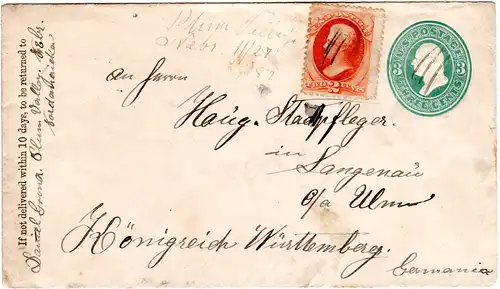 If not delivered within 10 days, to be returned to
Plum Valley, Nebr.
Plum
Nebr. 11/27
U.S. POSTAGE
THREE CENTS
3 3
TWO CENTS
An Herrn
Haug. Stadtpfleger.
in
Langenau
o/a Ulm
Königreich Württemberg.
Germania